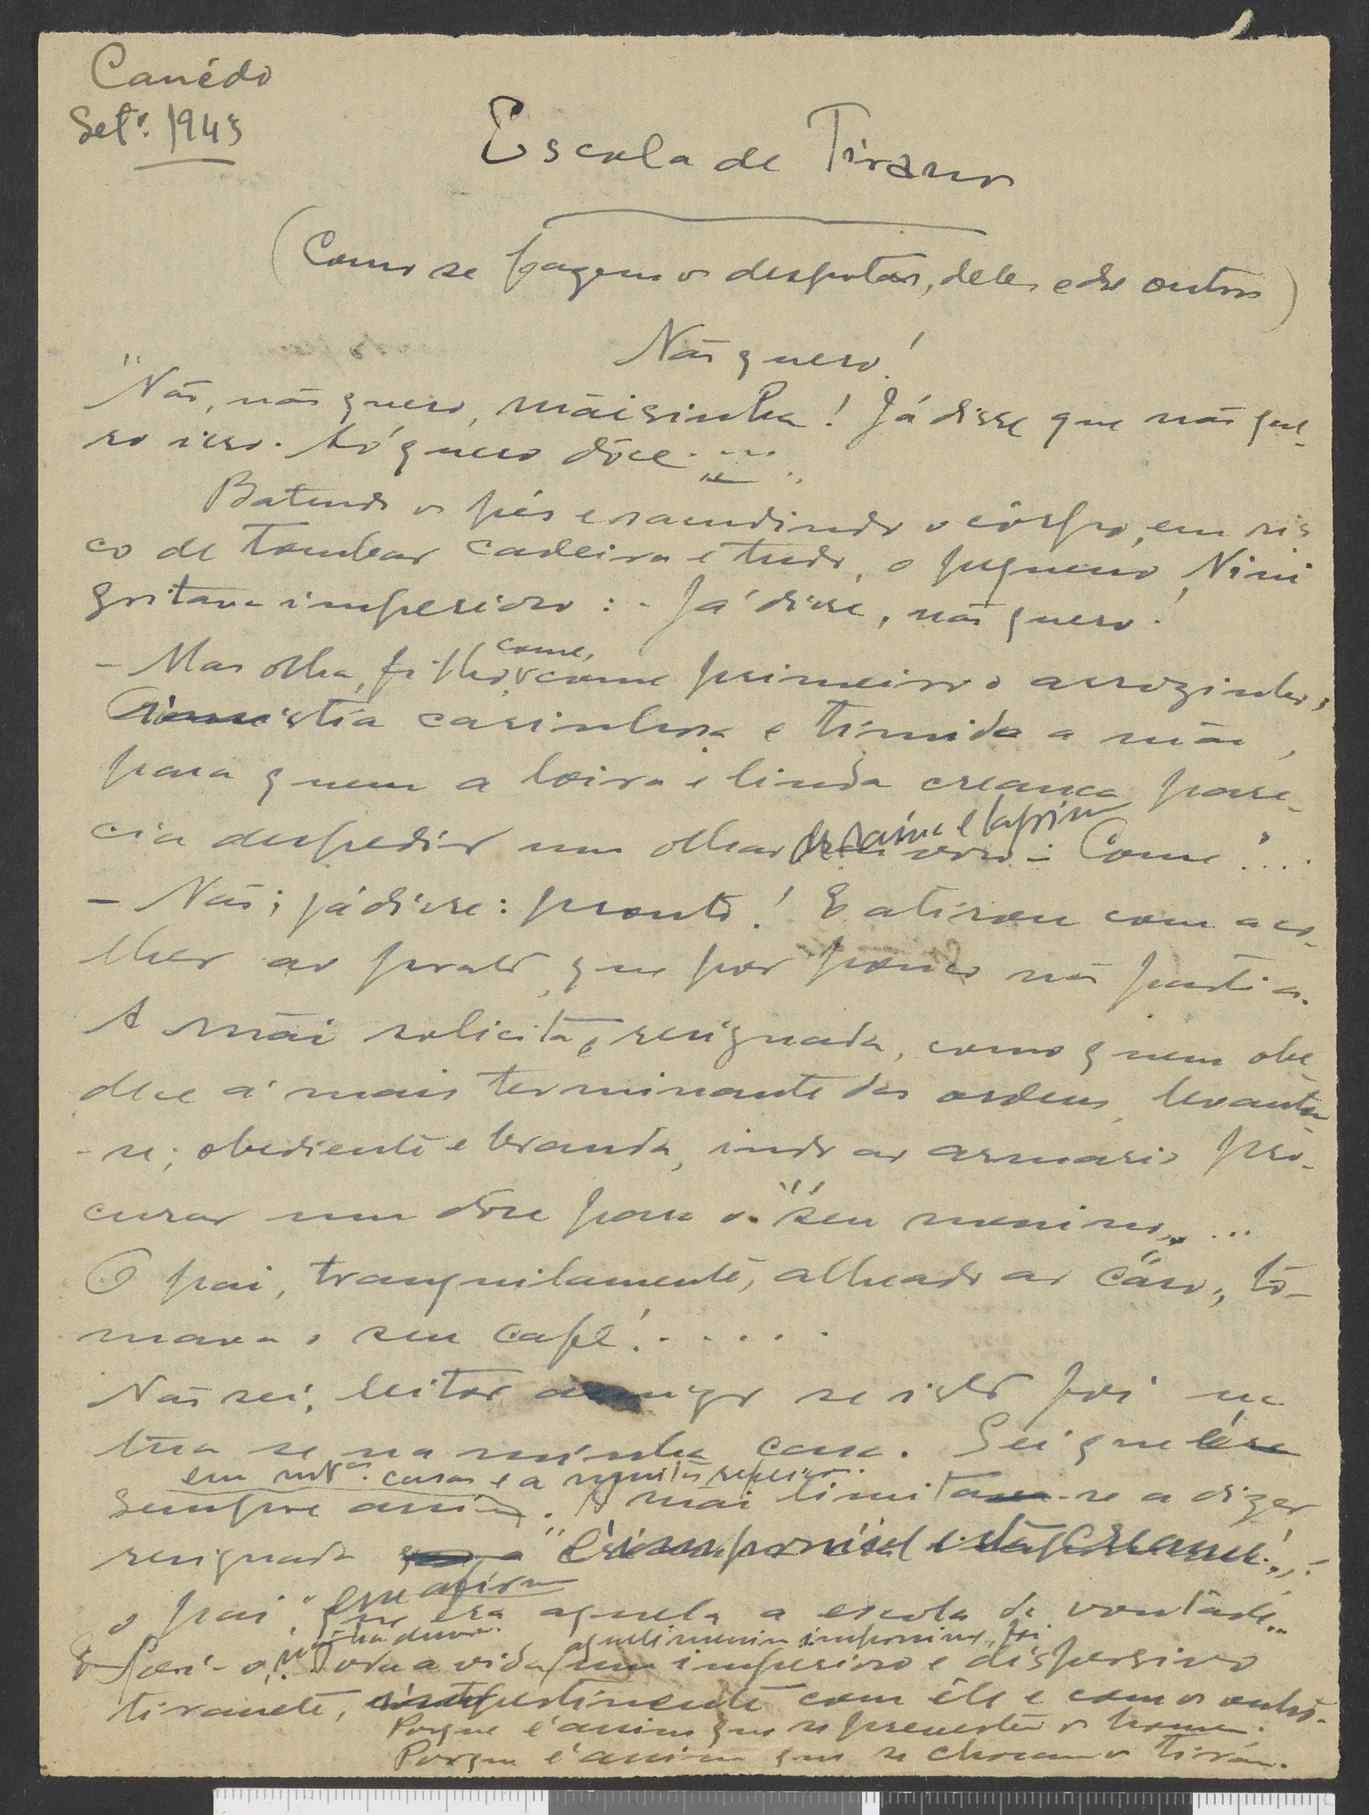 Canédo
Setº. 1945
Escola de Tirano
(Como se fazem os despotas, deles e dos outros)
Não quero!
"Não, não quero, mãisinha! Já disse que não que-
ro isso. Só quero dôce....
Batendo os pés e sacudindo o côrpo, em ris
co de tombar cadeira e tudo, o pequeno Nini
gritava imperioso: - Já disse, não quero!
- Mas olha, filho, come, come primeiro o arrozinho,
insistia carinhosa e timida a mãi,
para quem a loira e linda creança pare-
cia despedir um olhar de raiva e - Come!...
- Não; já disse: pronto! E atirou com a co-
lher ao prato, que por pouco não partia.
A mãi solicita e resignada, como quem obe-
dece á mais terminante das ordens, levantou-
-se; obediente e branda, indo ao armario pro-
curar um dôce para o "seu menino"...
O pai, tranquilamente, alheado ao "caso", to-
mava o seu café!.....
Não sei, leitor amigo se isto foi na
tua se na minha casa. Sei que
em mtas. casas e a
sempre assim. A mãi limita-se a dizer
resignada "É impossivel esta creança!"
o pai que era aquela a escola da vontade"
E foi-o. Toda a vida um imperioso e dispersivo
tiranete, com êle e com os outros.
Porque é assim que se o homem.
Porque é assim que se o tirano.